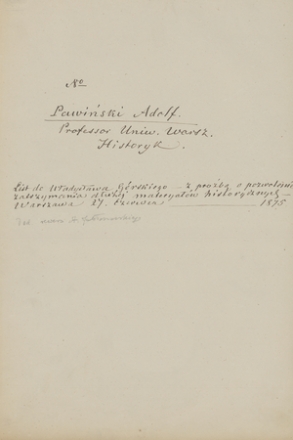 No
Pawiński Adolf.
Professor Uniw. Warsz.
Historyk.
List do Władysława Górskiego z prośbą o pozwolenie
zatrzymania dłużej materyałów historycznych
Warszawa 27 Czerwca 1875